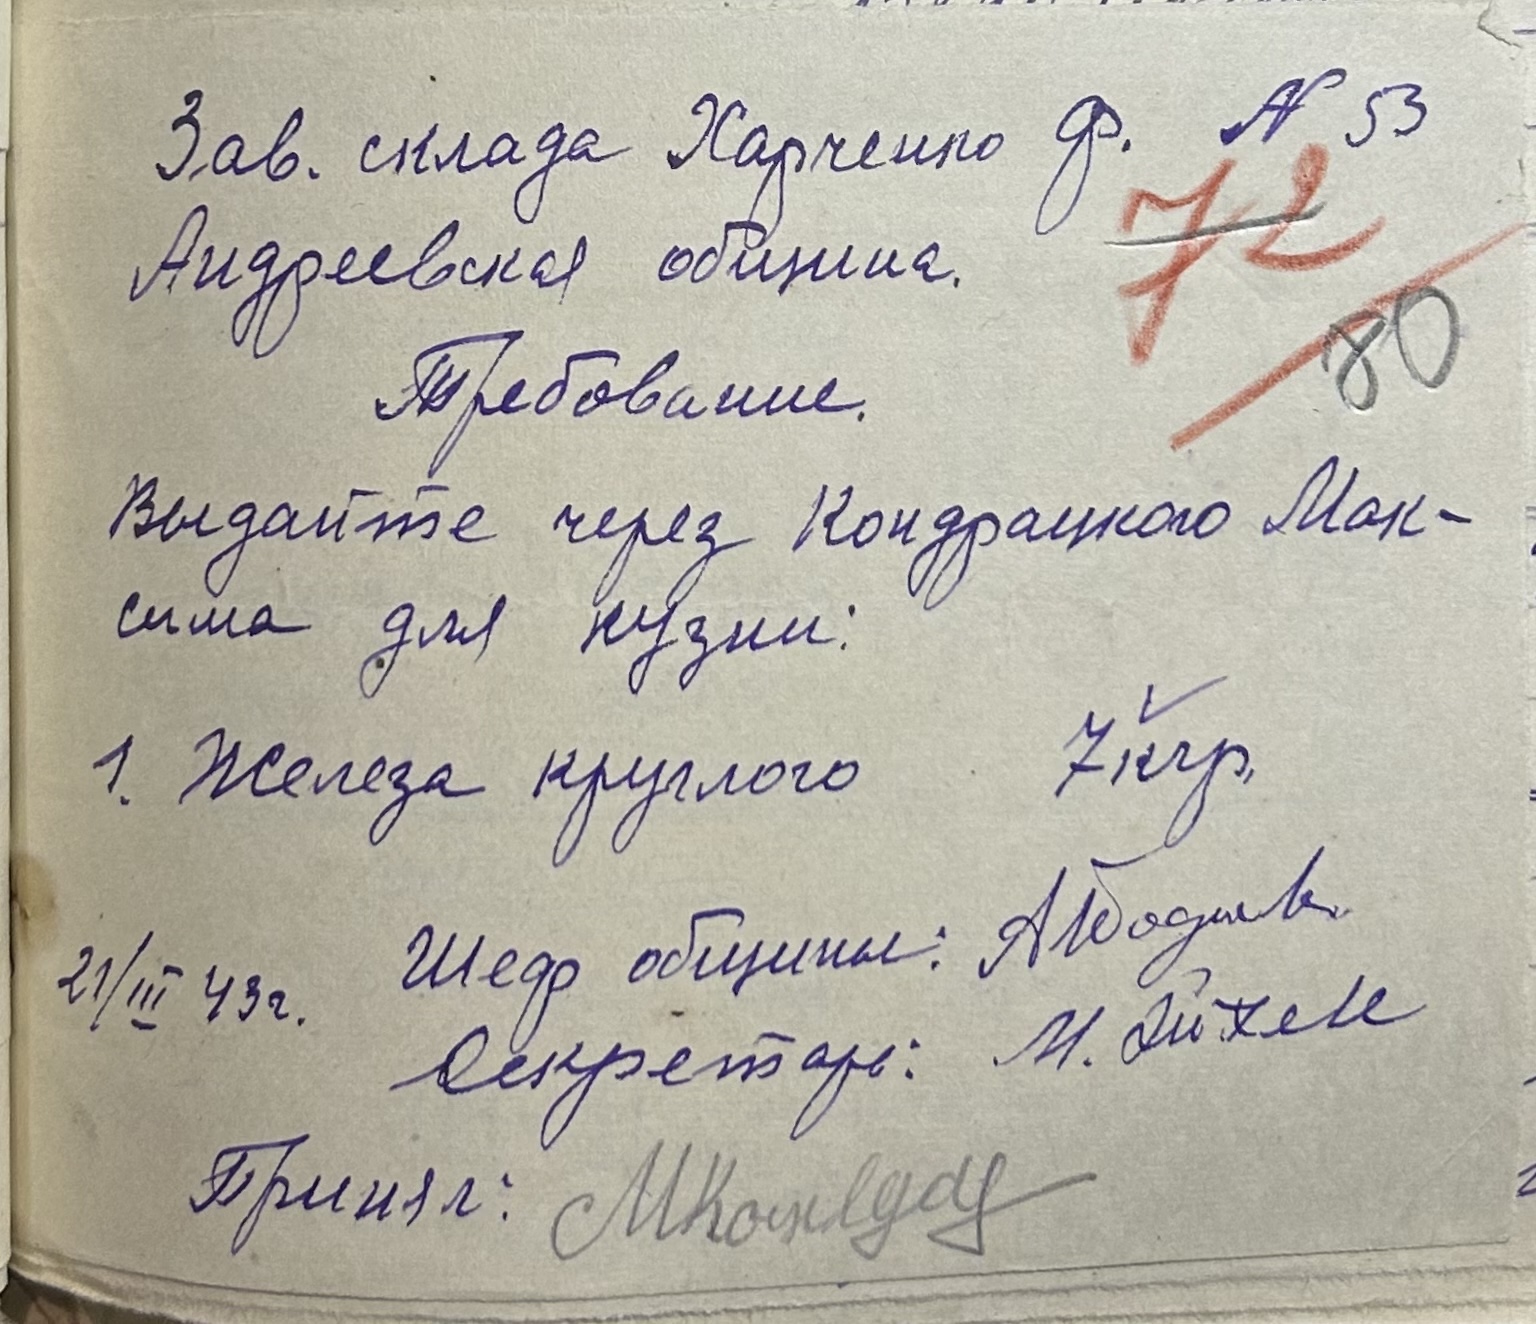 Зав. склада Харченко Ф. № 53
Андреевская община.
72
80
Требование.
Выдайте через Кондрацкого Мак-
сима для кузни:
1. Железа круглого 7 кгр.
21/III 43г. Шеф общины:
Секретарь: М.
Принял: